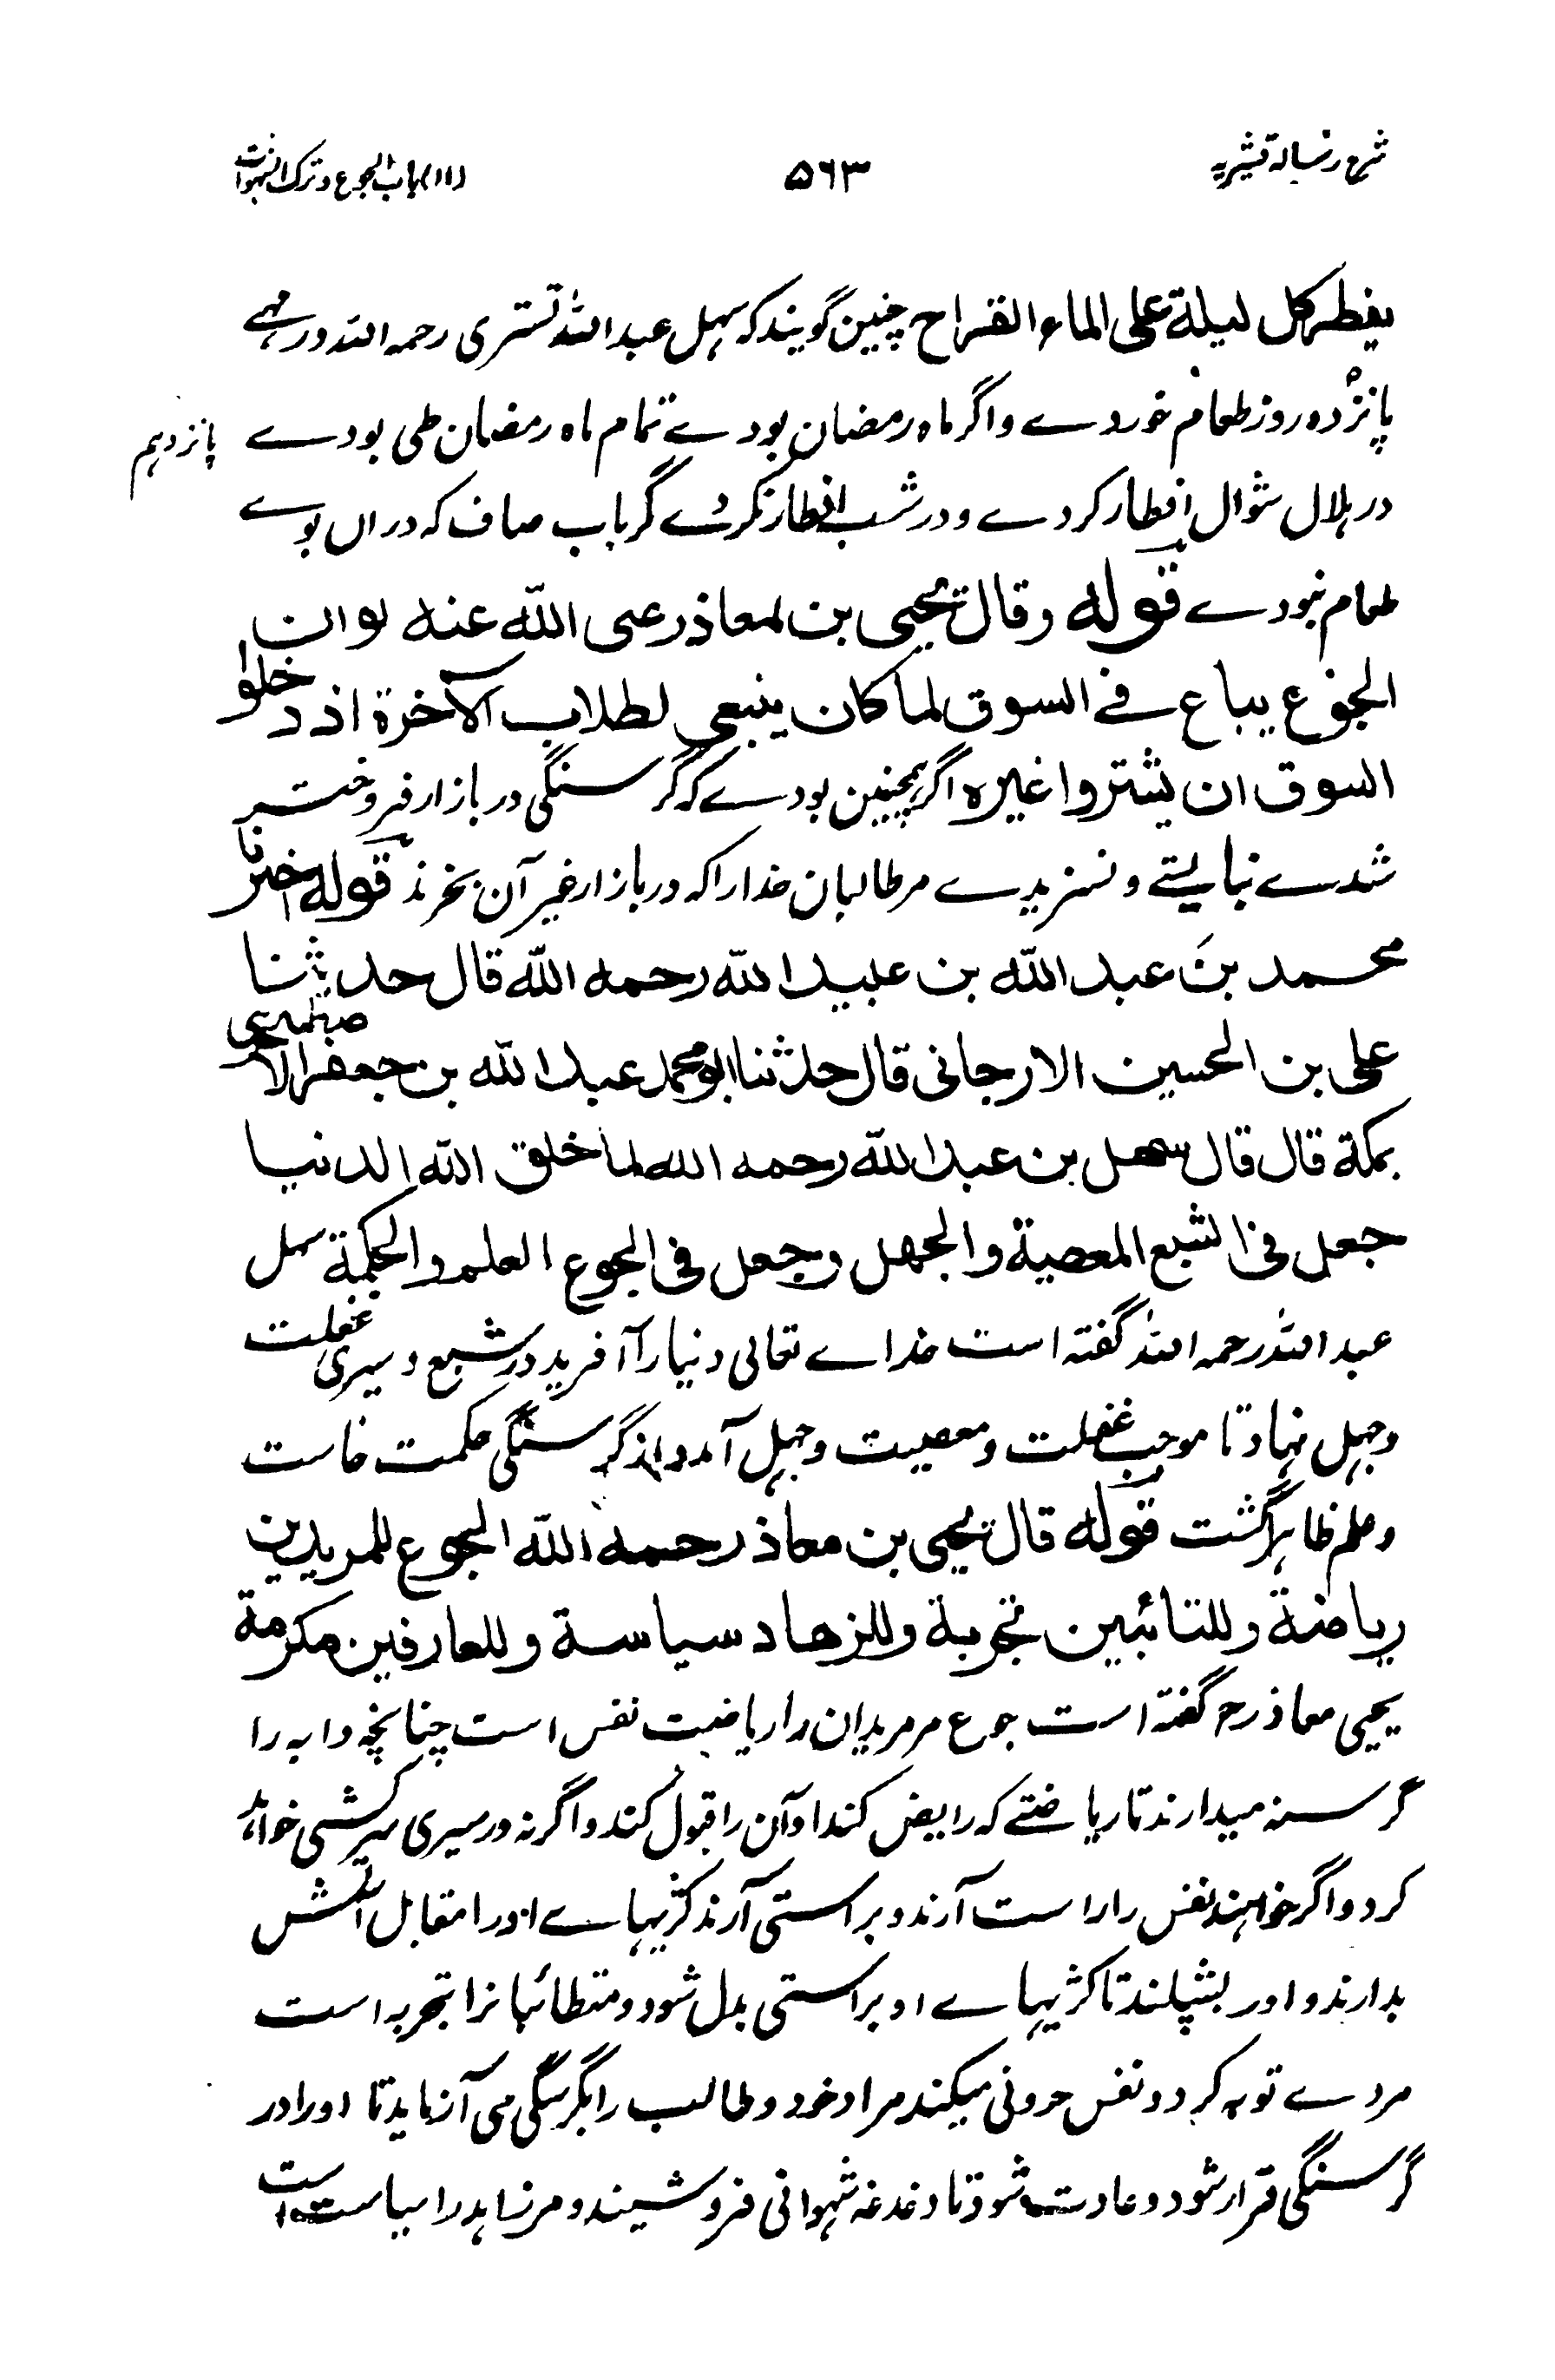 شرح رسالہ قشیریہ
۵۶۳
(۱۱) باب الجوع و ترک الشہوات
یفطر کل لیلة علی الماء القراح چنین گویند کہ سہل عبد اللہ تستری رحمہ اللہ در مہے
پانزدہ روز طعام خوردے و اگر ماہ رمضان بودے تمام ماہ رمضان طی بودے
پانزدہم
در ہلال شوال افطار کردے و در شب افطار نکردے مگر باب صاف کہ دراں بوے
طعام نبودے قوله وقال یحیی بن معاذ رضی الله عنه لو ان
الجوع یباع فی السوق لما کان ینبغی لطلاب الآخرة اذ دخلوا
السوق ان یشتروا غیره اگر ہمچنین بودے کہ گرسنگی در بازار فروختہ
شدے نبایستے و نسزیدے مر طالبان خدا را کہ در بازار غیر آن بخرند قوله اخبرنا
محمد بن عبد الله بن عبید الله رحمه الله قال حدثنا
علی بن الحسین الارجانی قال حدثنا ابو محمد عبد الله بن جعفر الاصطخری
بمکة قال قال سهل بن عبد الله رحمه الله لما خلق الله الدنیا
جعل فی الشبع المعصیة والجهل وجعل فی الجوع العلم والحکمة سہل
عبد اللہ رحمہ اللہ گفتہ است خداے تعالی دنیا را آفرید در شبع و سیری غفلت
و جہل نہاد تا موجب غفلت و معصیت و جہل آمد و از گرسنگی حکمت خاست
و علم ظاہر گشت قوله قال یحیی بن معاذ رحمه الله الجوع للمریدین
ریاضة وللتائبین تجربة وللزهاد سیاسة وللعارفین مکرمة
یحیی معاذ رح گفتہ است جوع مر مریدان را ریاضت نفس است چنانچہ دابہ را
گرسنہ میدارند تا ریاضتے کہ رایض کند او آن را قبول کند و اگر نہ در سیری سرکشی خواہد
کرد و اگر خواہند نفس را راست آرند و براستی آرند کژیہاے او را مقابل آتش
بدارند و اور بشپلند تا کژیہاے او براستی بدل شود و متطائبانرا تجربہ است
مردے توبہ کرد و نفس حرونی میکند مراد خود و طالب را بگرسنگی می آزماید تا او را در
گرسنگی قرار شود و عادت شود تا دغدغہ شہوانی فروشیند و مر زاہد را سیاست است